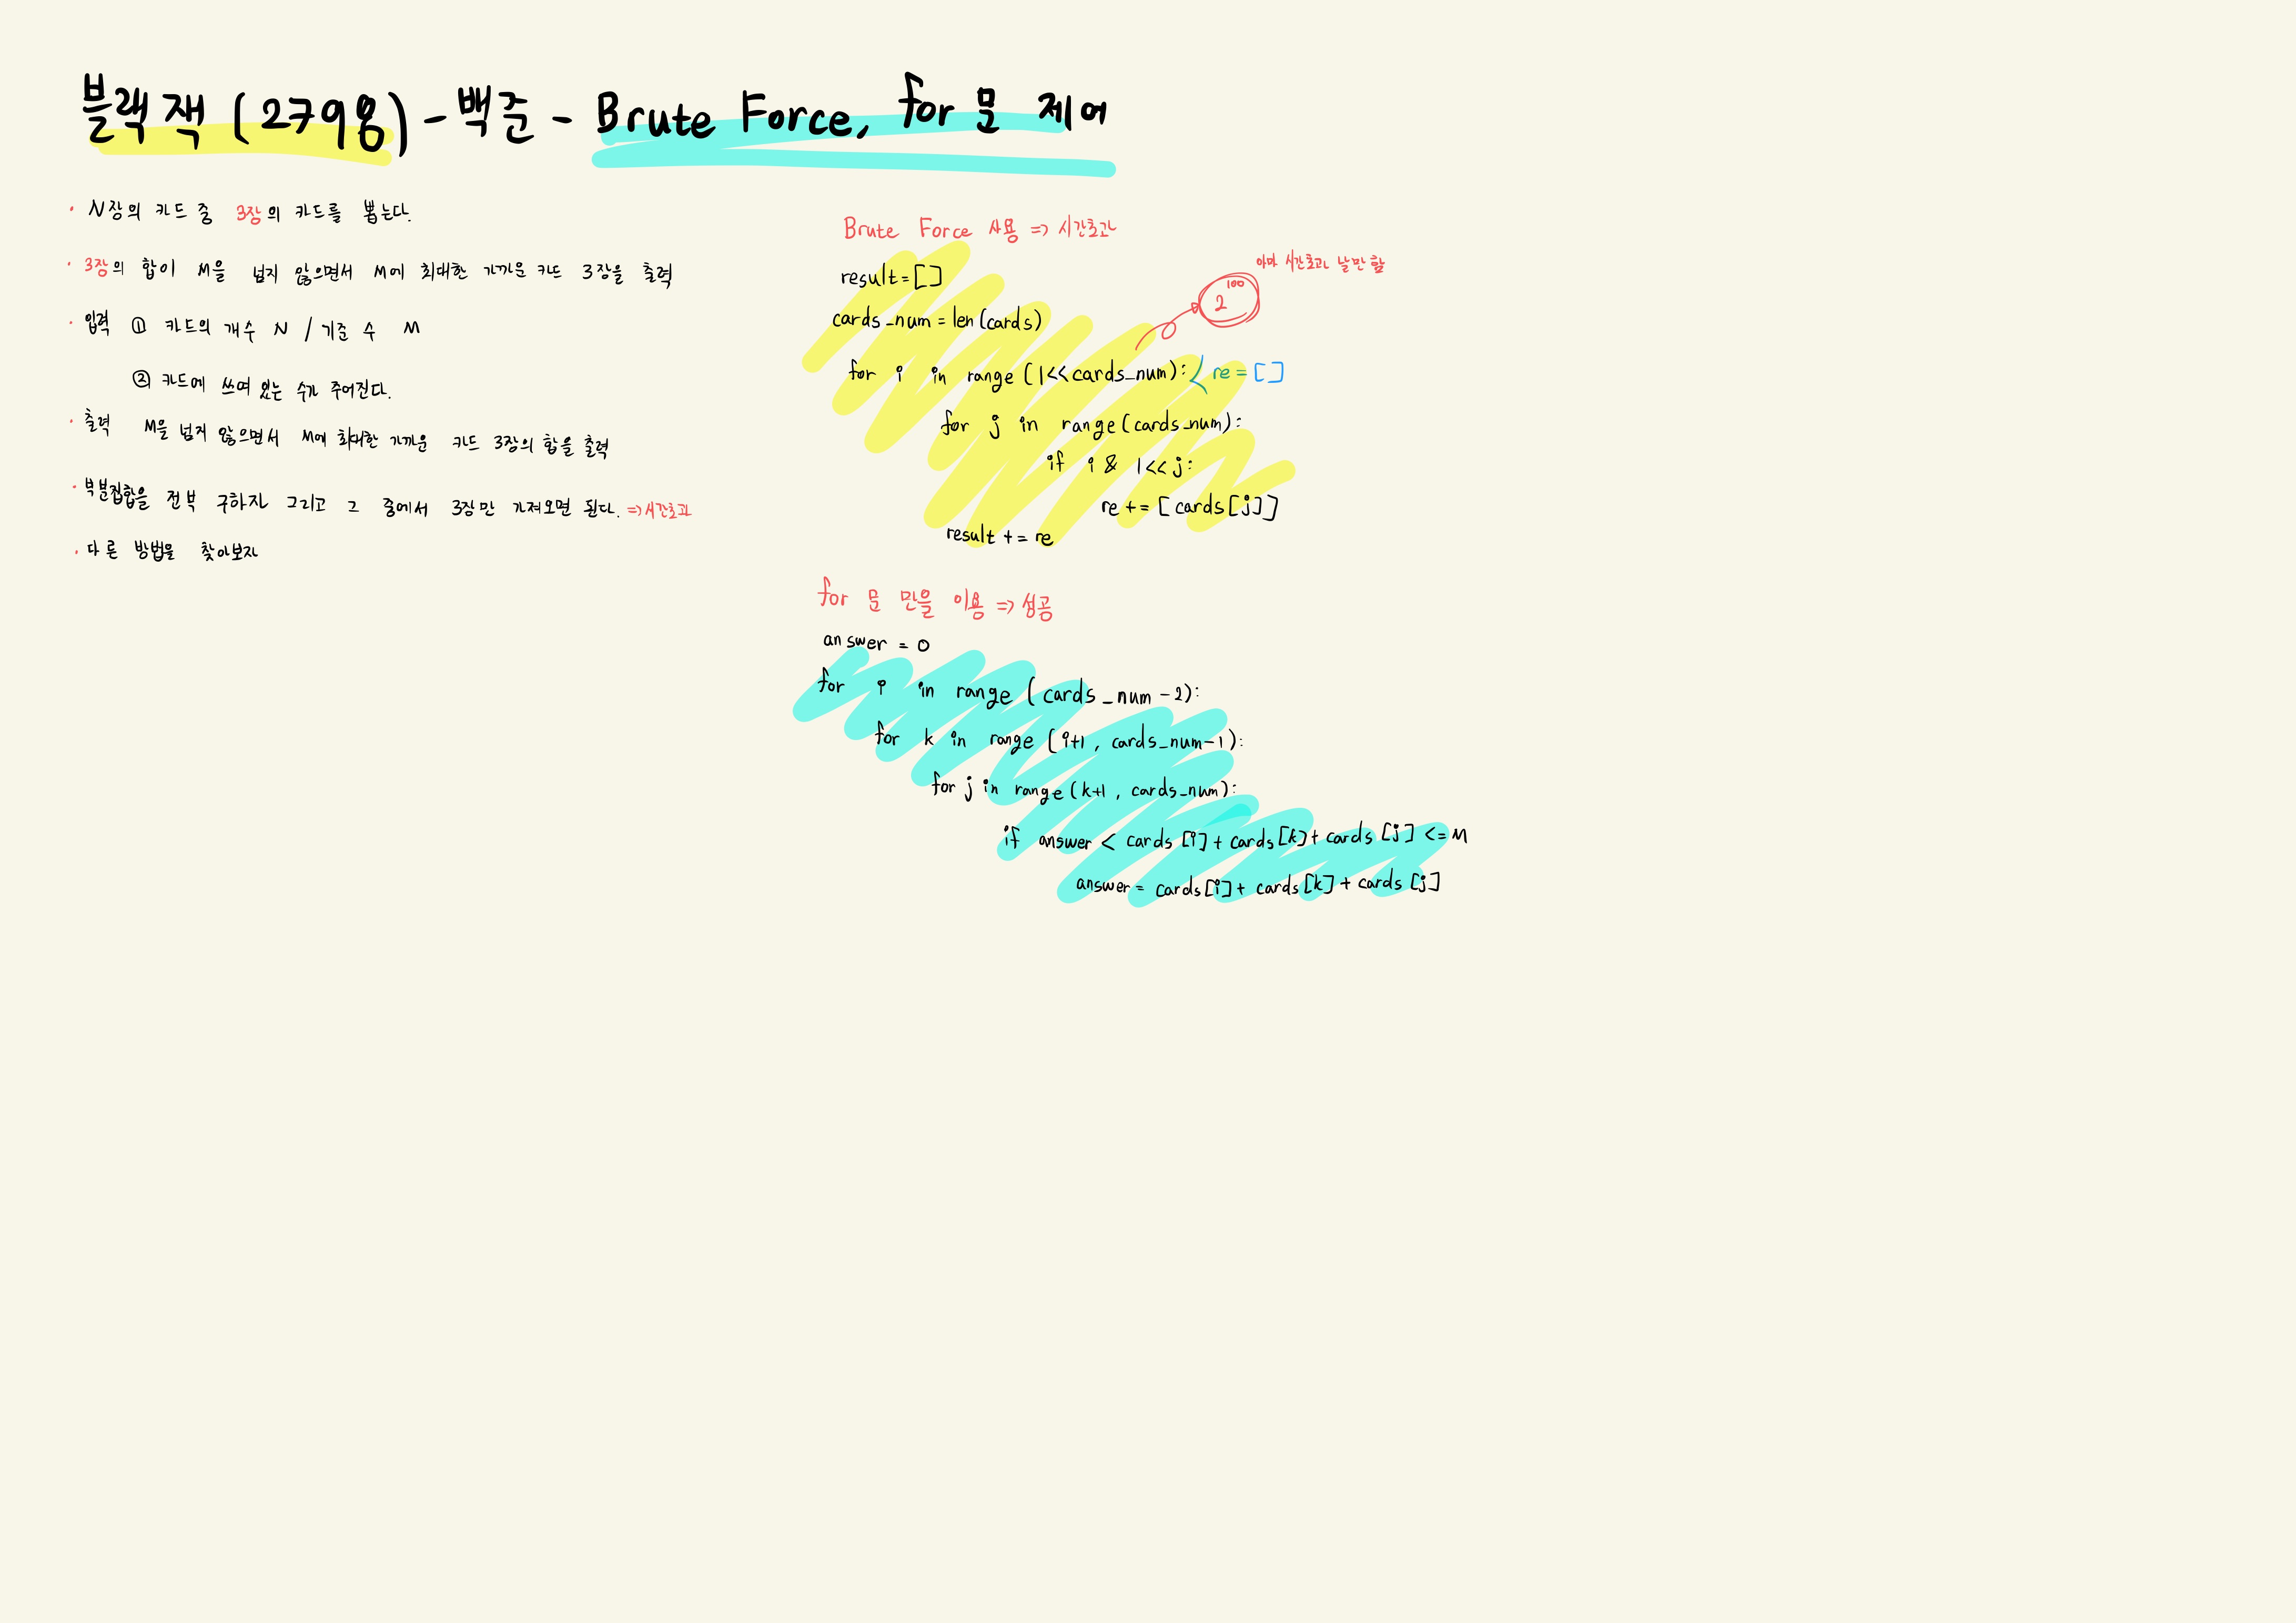 블랙잭 (2798) - 백준 - Brute Force, for 문 제어
· N장의 카드 중 3장의 카드를 뽑는다.
· 3장의 합이 M을 넘지 않으면서 M에 최대한 가까운 카드 3장을 출력
· 입력 ① 카드의 개수 N / 기준 수 M
② 카드에 쓰여 있는 수가 주어진다.
· 출력 M을 넘지 않으면서 M에 최대한 가까운 카드 3장의 합을 출력
· 부분집합을 전부 구하자 그리고 그 중에서 3장만 가져오면 된다. => 시간초과
· 다른 방법을 찾아보자
Brute Force 사용 => 시간초과
result = []
cards_num = len(cards)
아마 시간초과 날만 함
2^100
for i in range (1<<cards_num): < re = []
for j in range(cards_num):
if i & 1<<j:
re += [cards[j]]
result += re
for 문 만을 이용 => 성공
answer = 0
for i in range (cards_num -2):
for k in range (i+1, cards_num-1):
for j in range(k+1, cards_num):
if answer < cards [i] + cards [k] + cards [j] <= M
answer = cards[i] + cards [k] + cards [j]